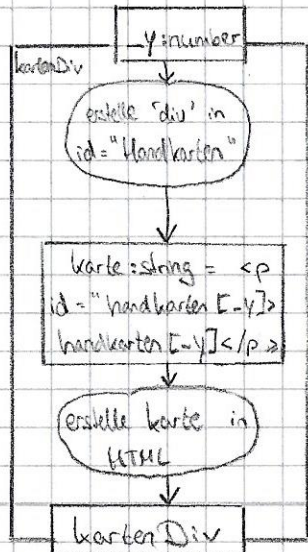 _y:number
kartenDiv
erstelle 'div' in
id="Handkarten"
karte:string = <p
id="handkarten [_y]>
handkarten [_y]</p>
erstelle karte in
HTML
kartenDiv